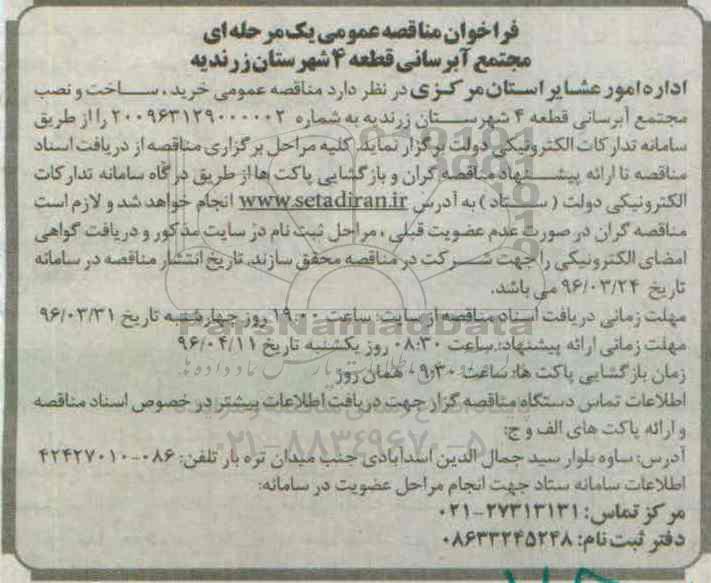 فراخوان مناقصه عمومی یک مرحله ای
مجتمع آبرسانی قطعه ۴ شهرستان زرندیه
اداره امور عشایر استان مرکزی در نظر دارد مناقصه عمومی خرید، ساخت و نصب
مجتمع آبرسانی قطعه ۴ شهرستان زرندیه به شماره ۲۰۰۹۶۳۱۲۹۰۰۰۰۰۲ را از طریق
سامانه تدارکات الکترونیکی دولت برگزار نماید. کلیه مراحل برگزاری مناقصه از دریافت اسناد
مناقصه تا ارائه پیشنهاد مناقصه گران و بازگشایی پاکت ها از طریق درگاه سامانه تدارکات
الکترونیکی دولت (ستاد) به آدرس www.setadiran.ir انجام خواهد شد و لازم است
مناقصه گران در صورت عدم عضویت قبلی، مراحل ثبت نام در سایت مذکور و دریافت گواهی
امضای الکترونیکی را جهت شرکت در مناقصه محقق سازند. تاریخ انتشار مناقصه در سامانه
تاریخ ۹۶/۰۳/۲۴ می باشد.
مهلت زمانی دریافت اسناد مناقصه از سایت: ساعت ۱۹:۰۰ روز چهارشنبه تاریخ ۹۶/۰۳/۳۱
مهلت زمانی ارائه پیشنهاد: ساعت ۰۸:۳۰ روز یکشنبه تاریخ ۹۶/۰۴/۱۱
زمان بازگشایی پاکت ها: ساعت ۰۹:۳۰ همان روز
اطلاعات تماس دستگاه مناقصه گزار جهت دریافت اطلاعات بیشتر در خصوص اسناد مناقصه
و ارائه پاکت های الف و ج:
آدرس: ساوه بلوار سید جمال الدین اسدآبادی جنب میدان تره بار تلفن: ۰۸۶-۴۲۴۲۷۰۱۰
اطلاعات سامانه ستاد جهت انجام مراحل عضویت در سامانه:
مرکز تماس: ۲۷۳۱۳۱۳۱-۰۲۱
دفتر ثبت نام: ۰۸۶۳۳۲۴۵۲۴۸
ParsNamadData
۰۲۱-۸۸۳۴۹۶۷۰-۵